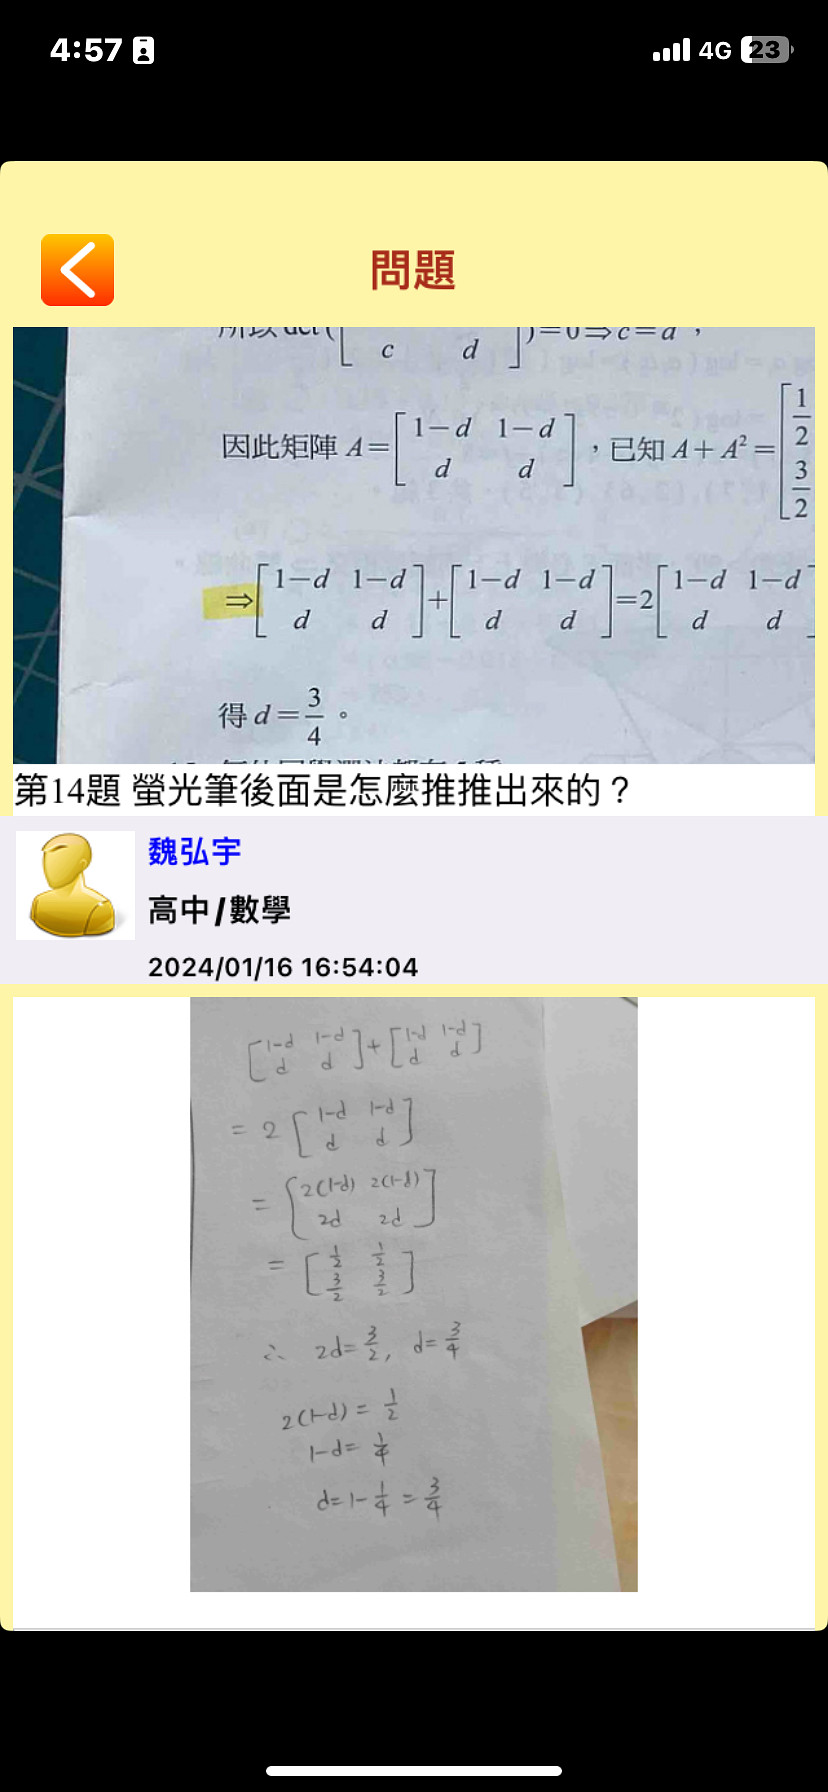 4:57
4G 23
問題
c d
因此矩陣 A=[1−d 1−d
d d],已知 A+A²=[1/2
3/2
⇒[1−d 1−d
d d]+[1−d 1−d
d d]=2[1−d 1−d
d d
得 d=3/4。
第14題 螢光筆後面是怎麼推推出來的?
魏弘宇
高中/數學
2024/01/16 16:54:04
[1-d 1-d
d d]+[1-d 1-d
d d]
= 2[1-d 1-d
d d]
= [2(1-d) 2(1-d)
2d 2d]
= [1/2 1/2
3/2 3/2]
∴ 2d=3/2, d=3/4
2(1-d)=1/2
1-d=1/4
d=1-1/4=3/4